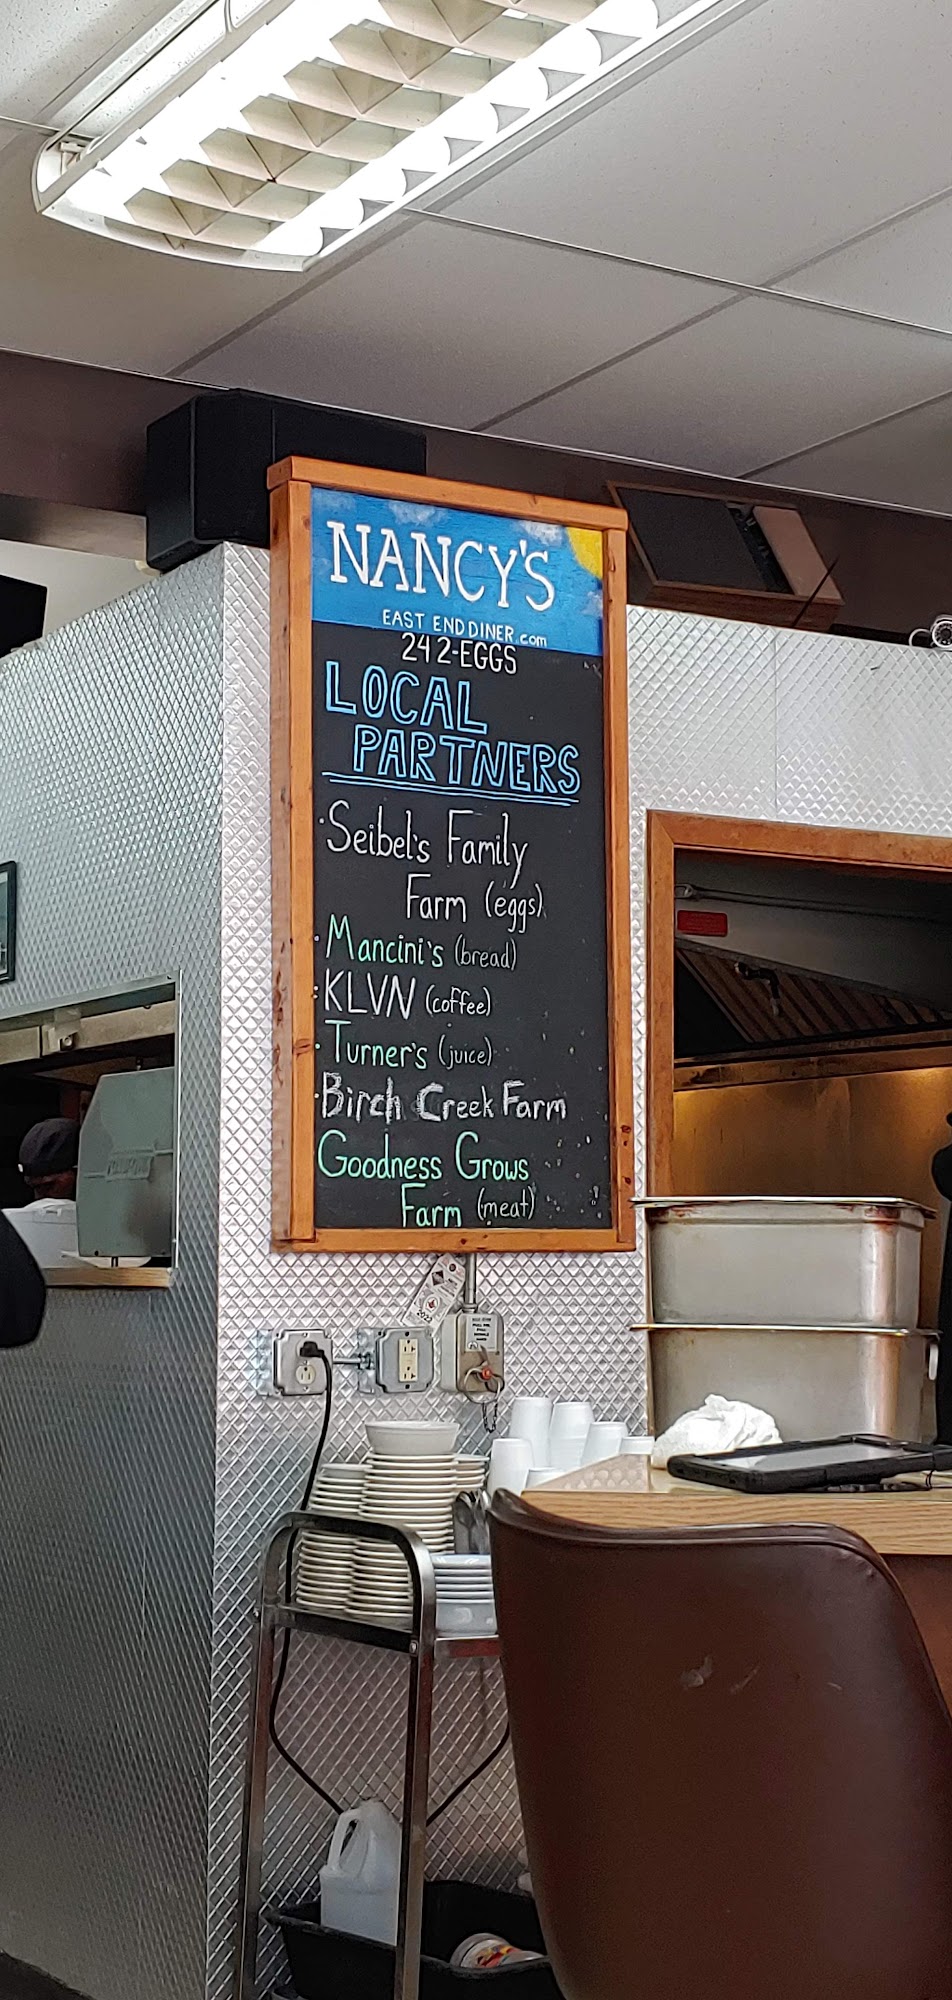 NANCY'S
EAST END DINER.com
242-EGGS
LOCAL
PARTNERS
·Seibel's Family
Farm (eggs)
·Mancini's (bread)
·KLVN (coffee)
·Turner's (juice)
·Birch Creek Farm
Goodness Grows
Farm (meat)